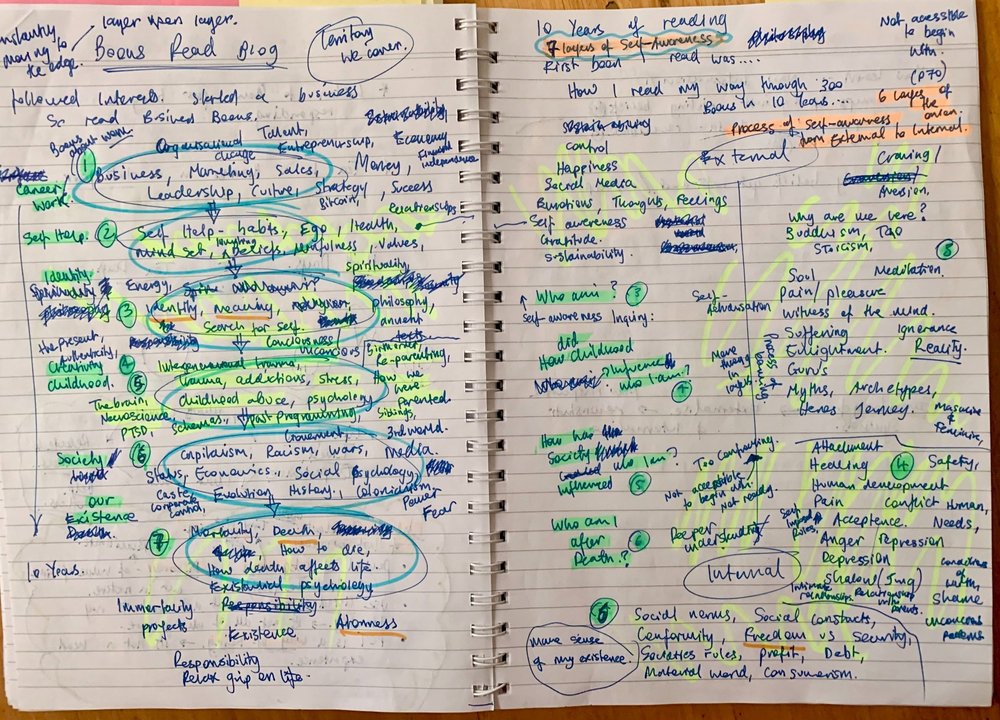 layer upon layer.
constantly
moving to
the edge.
Books Read Blog
Territory
we cover.
followed interests. started a business
So read Business Books.
Books
about work
Organisational
change
Talent,
Entrepreneurship,
Economy
Financial
independence
1
Business, Marketing, Sales,
Money,
Career
Work.
Leadership, Culture, Strategy
Bitcoin,
Success
relationships
Self Help:
2
Self Help - habits, Ego, Health,
mind set, beliefs, Mindfulness, Values,
Identity
Energy,
spirituality,
3
identity, meaning,
philosophy,
Search for Self.
ancient
texts.
Conciousness
unconcious
the present,
Authenticity!
Creativity
4
Childhood.
5
Intergenerational trauma,
trauma, addictions, stress,
childhood abuse, psychology
Schemas, Past Programming
Birth order,
Re-parenting,
How we
were
Parented.
Siblings,
The brain,
Neuroscience,
PTSD,
Government,
3rd world.
Society
6
Capitalism, Racism, wars, Media.
Status, Economics, Social Psychology
Caste,
Corporate
control,
Evolution, History, Colonialism.
Power
Fear
our
Existence
7
Mortality, Death,
How to die,
How death affects life.
existential psychology
10 Years.
Immortality
projects
Responsibility
Existence
Aloneness
Responsibility
Relax grip on life.
10 Years of reading
7 layers of Self-Awareness
First book I read was....
Not accessible
to begin
with.
How I read my way through 300
Books in 10 Years...
(P70)
6 layers of
the
onion
Process of Self-awareness
from External to Internal.
control
External
Happiness
Social Media
Emotions, Thoughts, Feelings
Self awareness
Gratitude.
Sustainability.
Craving/
Aversion,
Why are we here?
Buddhism, Tao
Stoicism,
3
Soul
Meditation,
Pain/pleasure
Witness of the mind.
Suffering
Ignorance
Enlightment.
Reality.
Guru's
Myths, Archetypes,
Heroes Journey.
Masculine
&
Feminine,
Who am i?
3
Self-awareness Inquiry:
Self-
Actualisation
did
How childhood
influence
who I am?
4
More
things
in
layers.
Process of
becoming
How has
Society
who I am?
Influenced
5
Too confronting.
Not accessible
to begin with.
Not ready.
Who am I
after
Death?
6
Deeper
understanding
Internal
Attachment
Healing
4
Safety,
Human development
Pain
Conflict
Human
Needs,
Acceptance.
Self
Imposed
Rules,
Anger repression
Depression
Shadow (Jung)
Intimate
relationships.
Relationship
with
Parents.
Shame
unconcious
patterns
more sense
of my existence.
Social norms, Social Constructs,
Conformity, Freedom vs Security,
Societies rules, profit, Debt,
Material world, Consumerism.